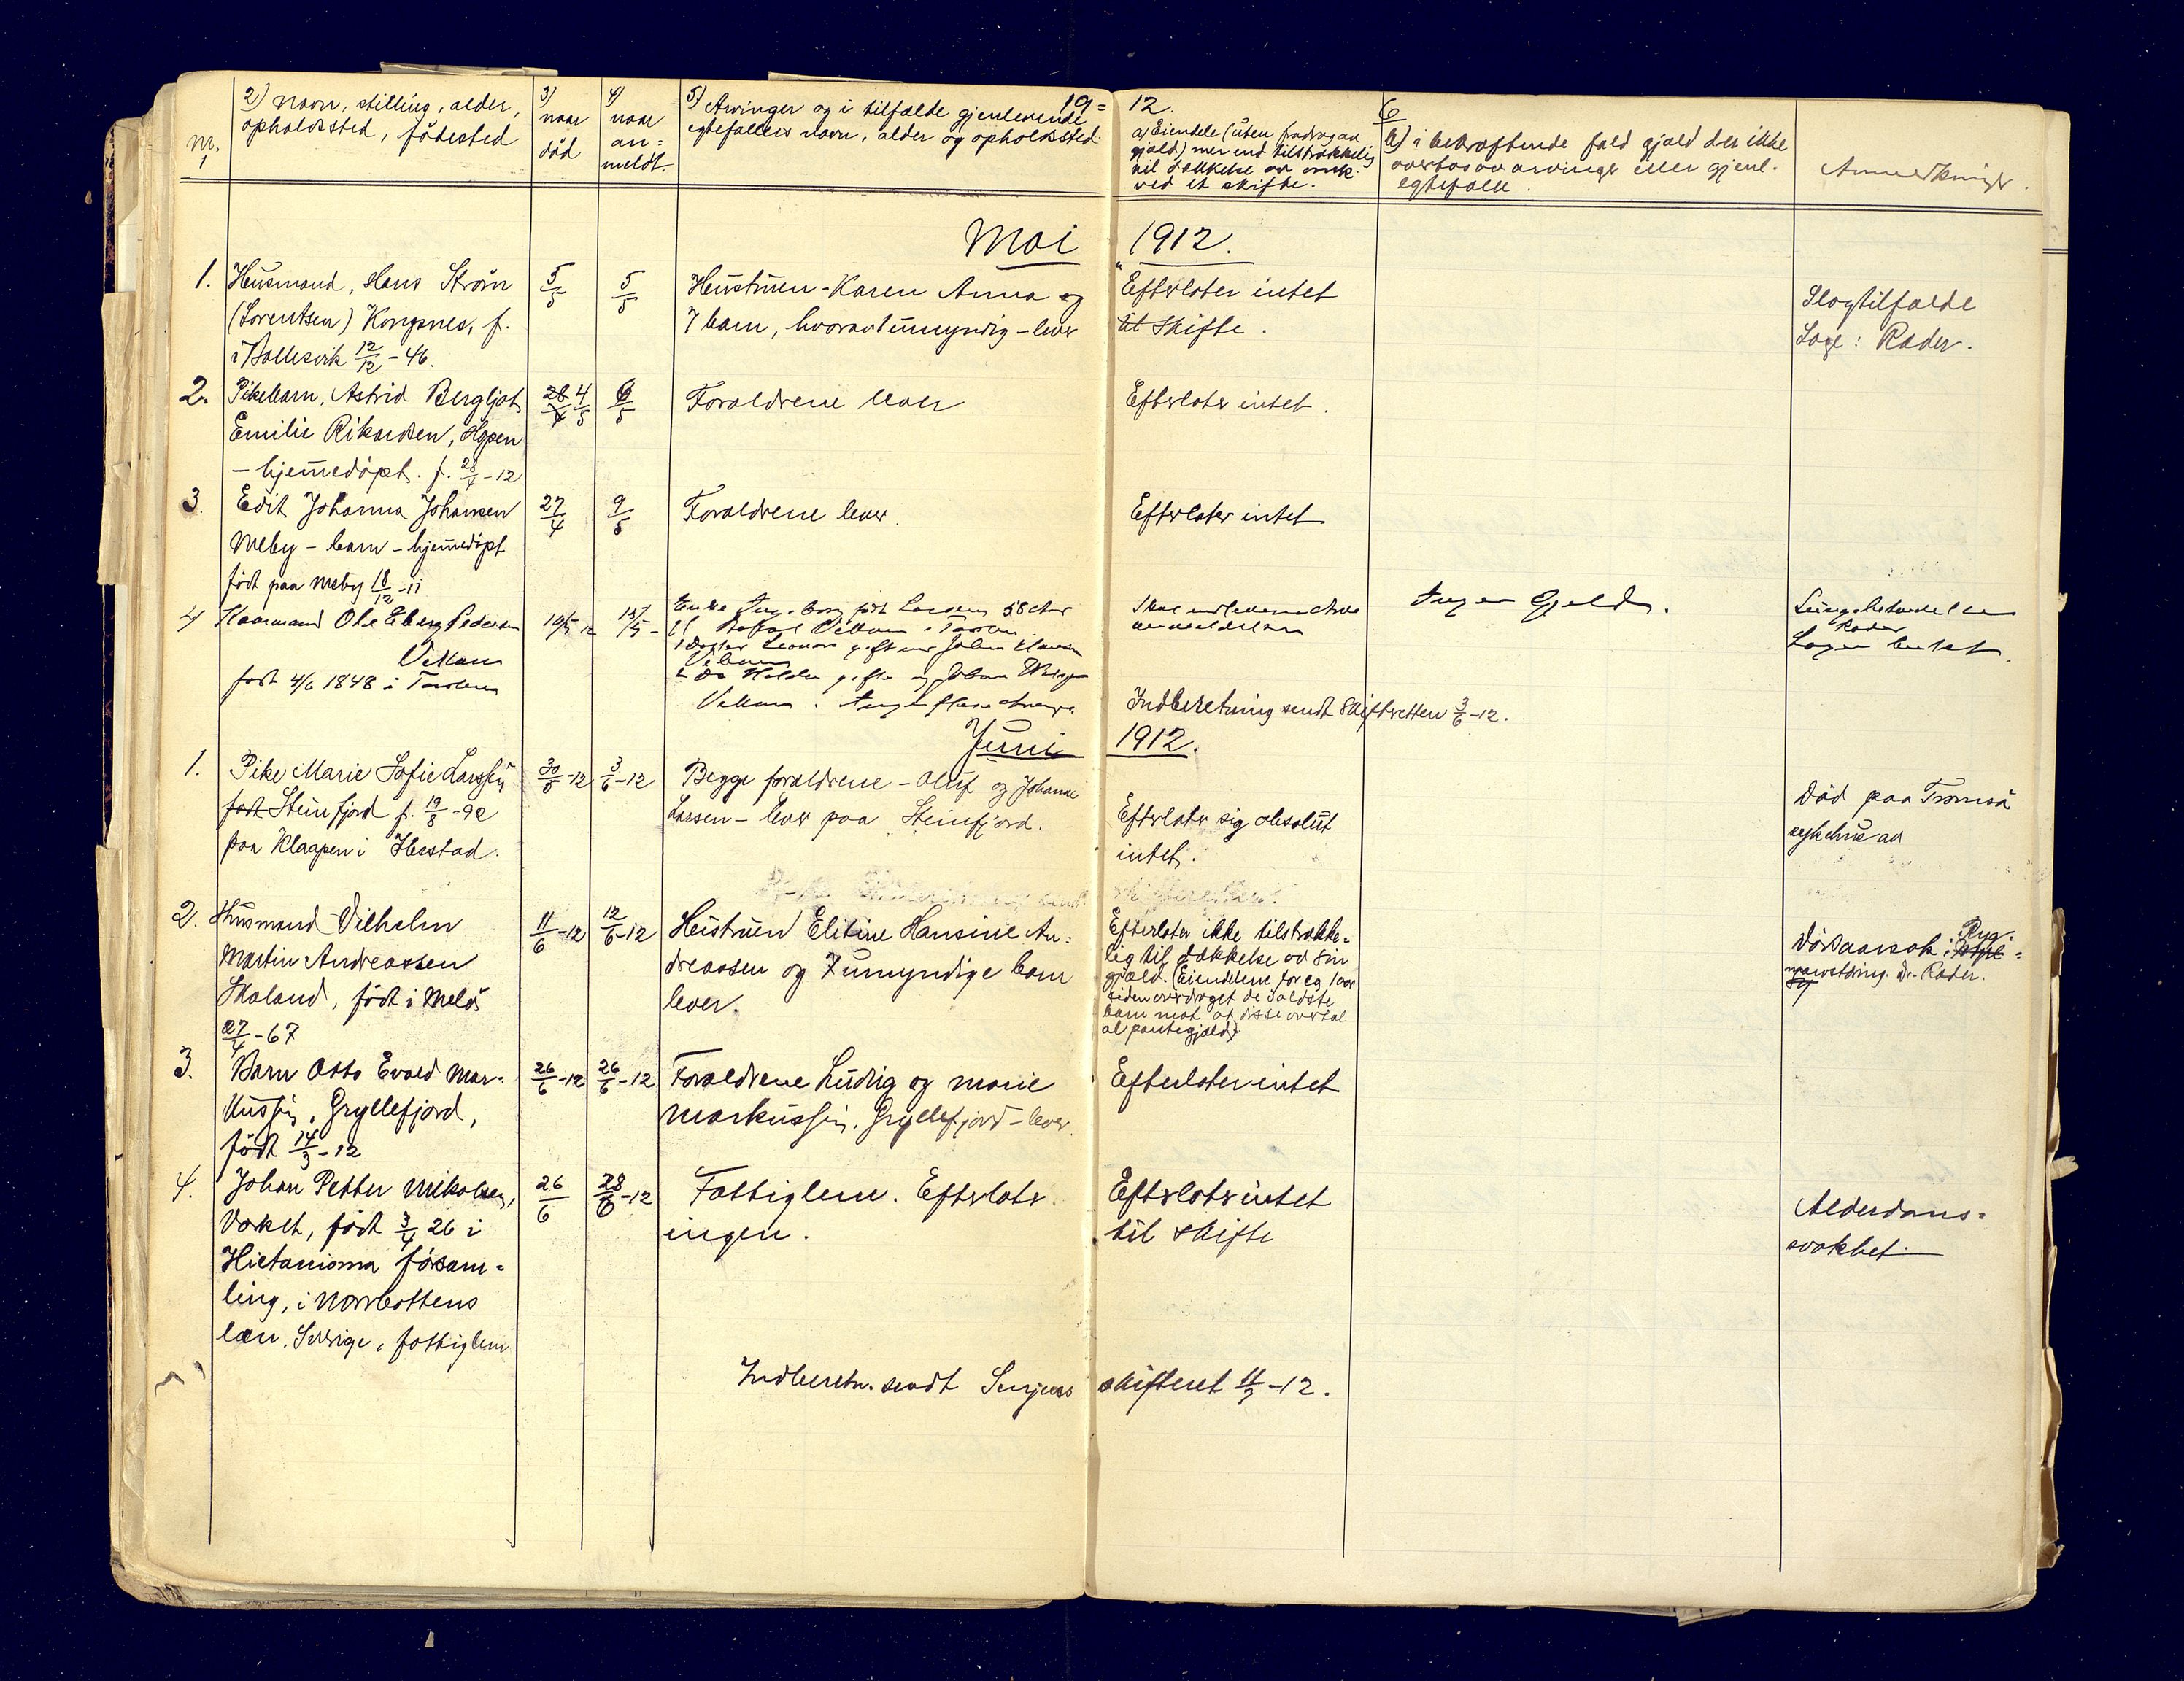 19 = 12.
Nr.
1
2) Navn, stilling, alder,
opholdssted, födested
3)
naar
död
4)
naar
an=
meldt.
5) Arvinger og i tilfælde gjenlevende
egtefælles navn, alder og opholdssted
6
a) Eiendele (uten fradrag av
gjæld) mer end tilstrækkelig
til dækkelse av omk.
ved et skifte.
b) i bekræftende fald gjæld der ikke
overtas av arvinger eller gjenl.
egtefælle.
Anmerkninger.
Mai 1912.
1.
Husmand, Hans Ström
(Lorentsen) Kongsnes, f.
i Ballesvik 12/12 - 46.
5/5
5/5
Hustruen - Karen Anna og
7 barn, hvorav 1 umyndig - lever
Efterlater intet
til skifte.
Slagtilfælde
Læge: Rader.
2.
Pikebarn, Astrid Bergljot
Emilie Rikardsen, Hopen
- hjemmedöpt. f. 28/4 - 12
28/4 4/5
6/5
Forældrene lever
Efterlater intet.
3.
Edit Johanna Johansen
Meby - barn - hjemmedöpt
födt paa Meby 18/12 - 11
27/4
9/5
Forældrene lever.
Efterlater intet
4
Gaarmand Ole Eberg Pedersen
födt 4/6 1848 i
10/5 12
födt Larsen 58 aar
gift
Ingen Gjeld.
Rader
Indberetning sendt skifteretten 3/6 - 12.
Juni 1912.
1.
Pike Marie Sofie Larssen
födt Steinfjord f. 19/8 - 92
paa Klaapen i Ibestad.
30/5 - 12
3/6 - 12
Begge forældrene - Oluf og Johanne
Larsen - lever paa Steinfjord.
Efterlater sig absolut
intet.
Död paa Tromsö
sykehus av
2.
Husmand Vilhelm
Martin Andreassen
Skaland, födt i Melö
27/4 - 67
11/6 - 12
12/6 - 12
Hustruen Elitine Hansine An=
dreassen og 7 umyndige barn
lever.
Efterlater ikke tilstrække=
lig til dækkelse av sin
gjæld. (Eiendelene for eg 1 aar
siden overdraget de 2 ældste
barn mot at disse overtok
al pantegjæld)
Dödsaarsak: Ryg=
marvstæring. Dr. Rader.
3.
Barn Otto Evald Mar=
kussen, Gryllefjord,
födt 14/3 - 12
26/6 - 12
26/6 - 12
Forældrene Ludvig og Marie
Markussen, Gryllefjord - lever.
Efterlater intet
4.
Johan Petter Mikalsen,
Vaket, födt 3/4 26 i
Hietaniema försam=
ling, i Norrbottens
læn, Sverige, fattiglem
26/6
28/6 - 12
Fattiglem. Efterlater
ingen.
Efterlater intet
til skifte
Alderdoms=
svakhet
Indberetn. sendt Senjens skifteret 11/7 - 12.